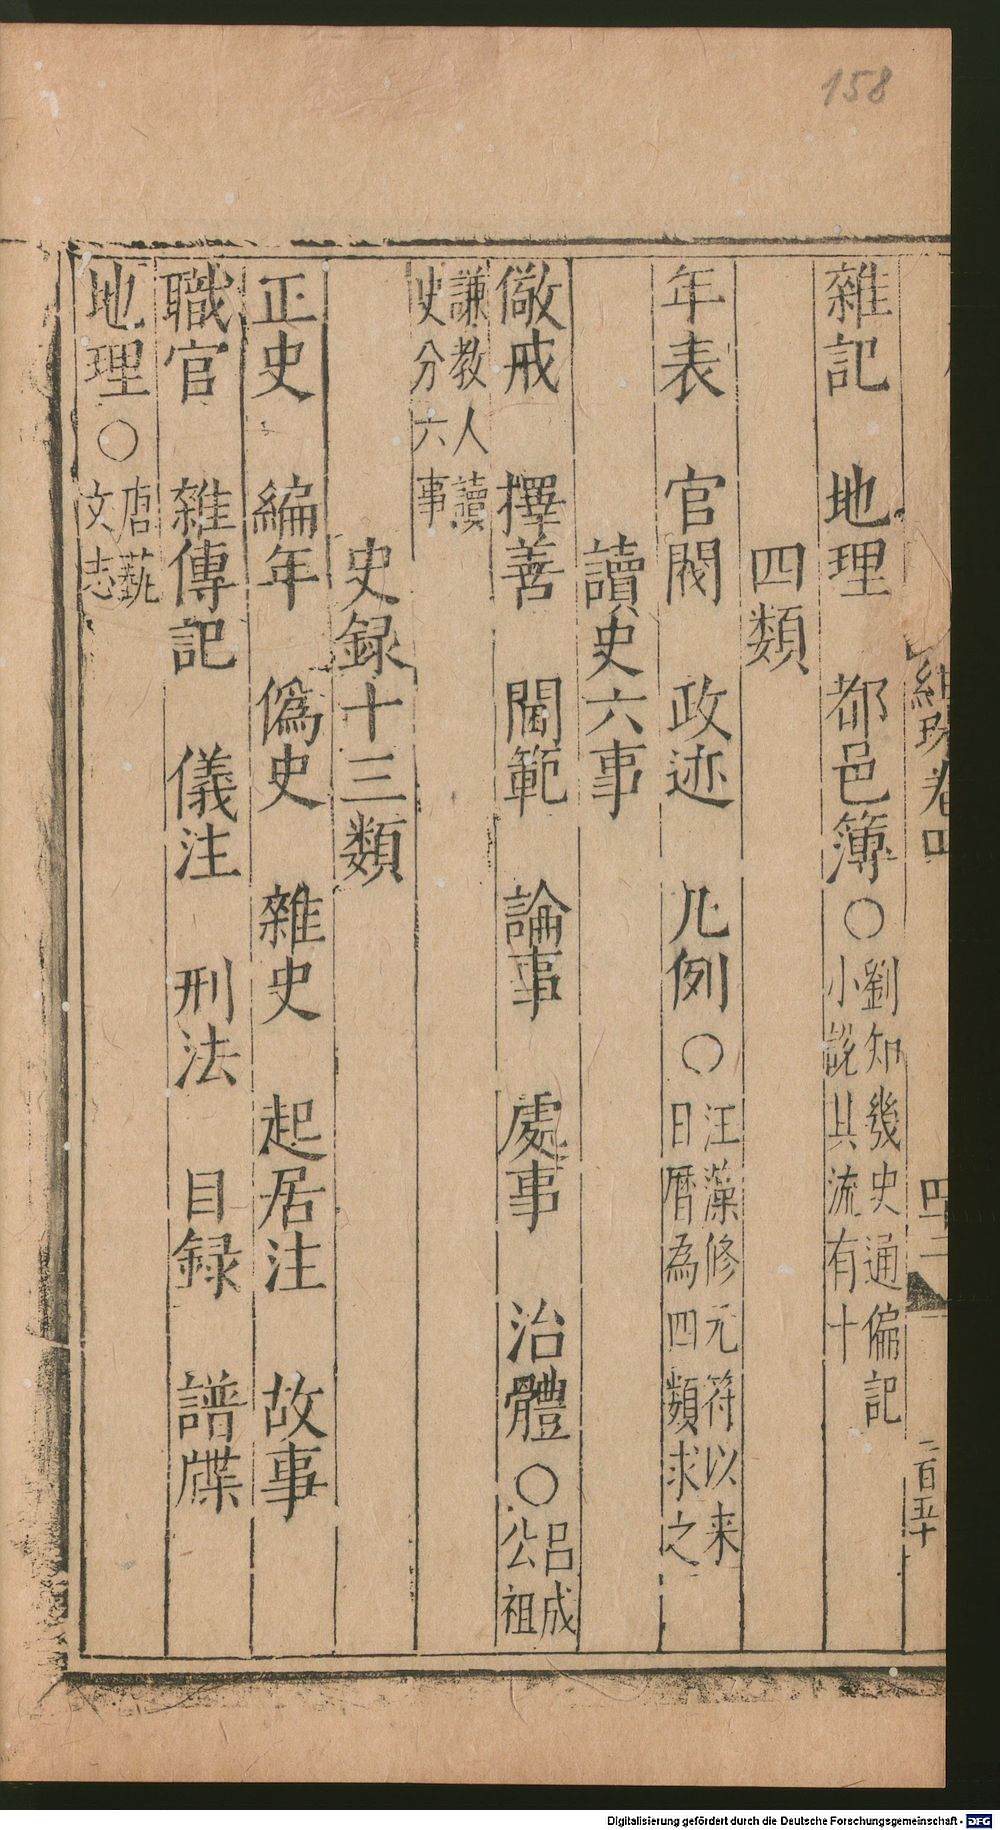 158
雜記　地理　都邑簿○劉知幾史通偏記小說其流有十
四類
年表　官閥　政迹　凡例○汪藻修元符以来日曆為四類求之
讀史六事
儆戒　擇善　閫範　論事　處事　治體○呂成公祖
謙教人讀史分六事
史録十三類
正史　編年　偽史　雜史　起居注　故事
職官　雜傳記　儀注　刑法　目録　譜牒
地理○唐藝文志
二百五十
Digitalisierung gefördert durch die Deutsche Forschungsgemeinschaft - DFG